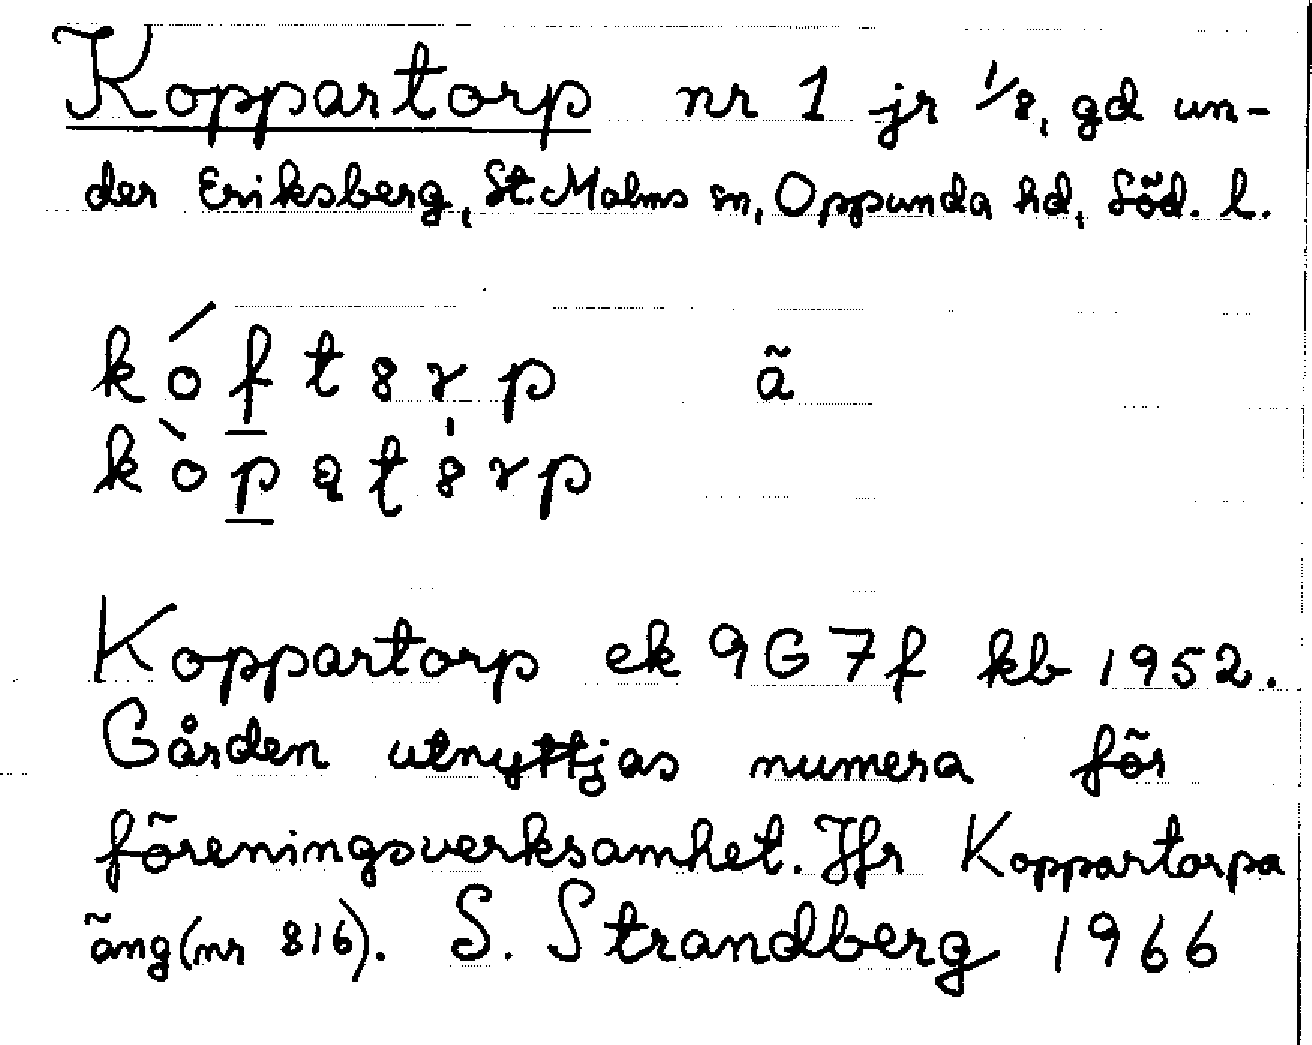 Koppartorp nr 1 jr 1/8, gd un-
der Eriksberg, St. Malms sn, Oppunda hd, Söd. l.
kóft8rp ã
kòpət8rp
Koppartorp ek 9G7f kb 1952.
Gården utnyttjas numera för
föreningsverksamhet. Jfr Koppartorpa
äng (nr 816). S. Strandberg 1966